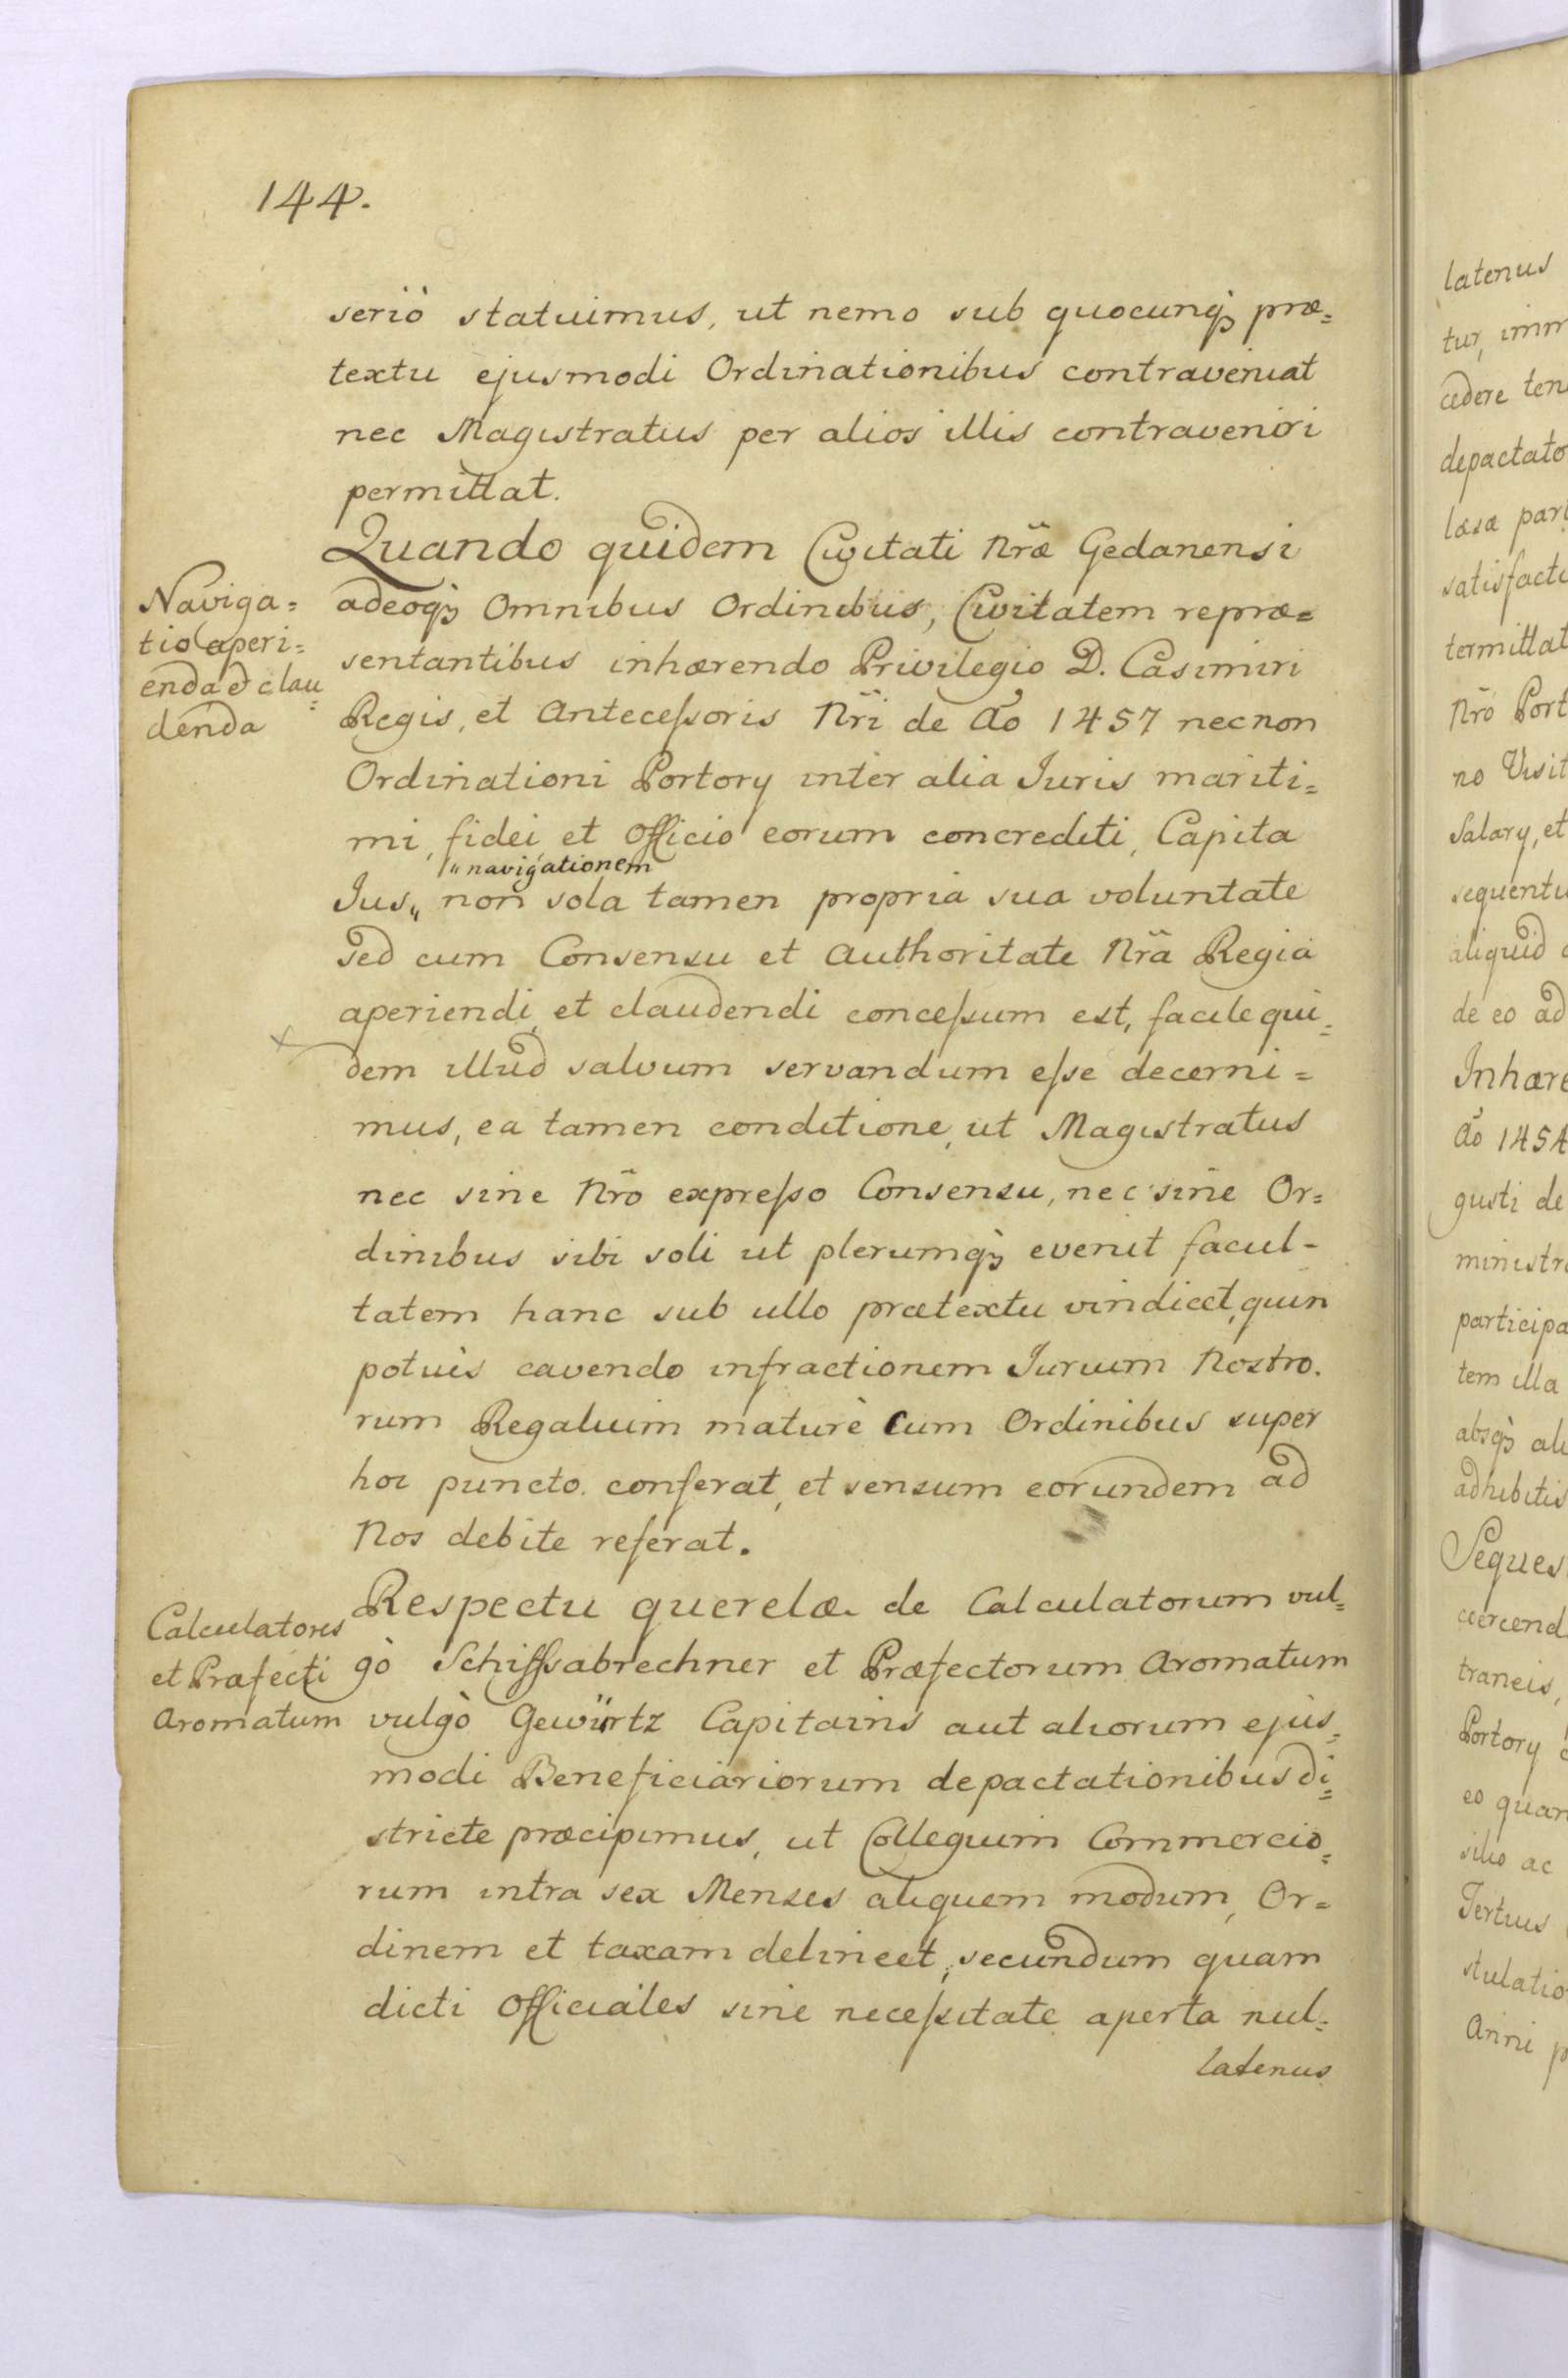 144.
seriò statuimus, ut nemo sub quocunqȝ præ=
textu ejusmodi Ordinationibus contraveniat
nec Magistratus per alios illis contraveniri
permittat.
Naviga=
tio aperi=
enda et clau=
denda
Quando quidem Civitati Nr̃æ Gedanensi
adeoqȝ Omnibus Ordinibus, Civitatem repræ=
sentantibus inhærendo Privilegio D. Casimiri
Regis, et Antecessoris Nr̃i de Ao 1457 necnon
Ordinationi Portorÿ inter alia Iuris mariti=
mi, fidei et Officio eorum concrediti, Capita
„navigationem
Jus„ non sola tamen propria sua voluntate
sed cum Consensu et Authoritate Nr̃a Regia
aperiendi et claudendi concessum est, facile qui=
dem illud salvum servandum esse decerni=
mus, ea tamen conditione, ut Magistratus
nec sine Nr̃o expresso Consensu, nec sine Or=
dinibus sibi soli ut plerumqȝ evenit facul-
tatem hanc sub ullo prætextu vindicet, quin
potuis cavendo infractionem Iurium Nostro.
rum Regalium maturè cum Ordinibus super
hoc puncto conferat, et sensum eorundem ad
Nos debite referat.
Calculatores
et Præfecti
Aromatum
Respectu querelæ de Calculatorum vul=
gò Schiffsabrechner et Præfectorum Aromatum
vulgò Gewürtz Capitains aut aliorum ejus=
modi Beneficiariorum depactationibus di=
stricte præcipimus, ut Collegium Commercio=
rum intra sex Menses aliquem modum, Or=
dinem et taxam delineet, secundum quam
dicti Officiales sine necessitate aperta nul=
latenus
latenus
tur, imm
cedere ten
depactato
læsæ part
satisfacti
termittat
Nr̃o Port
no Visit
Salarÿ, et
sequentu
aliquid
de eo ad
Inhære
Ao 1454
gusti de
ministr
participa
tem illa
absqȝ ali
adhibitis
Seques
cœrcend
traneis,
Portorÿ
eo quan
silio ac
Tertius
stulatio
Anni p